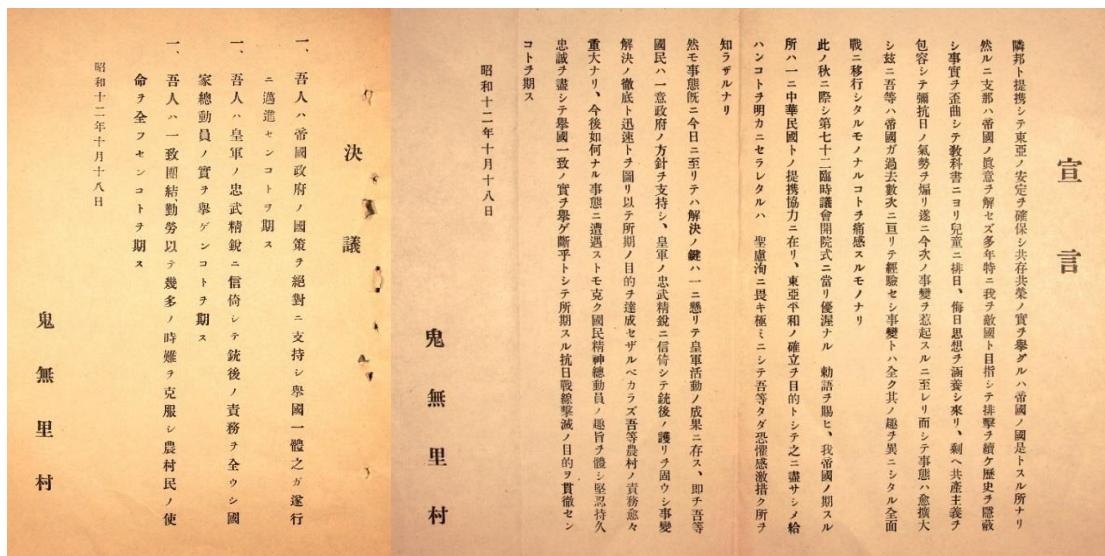 宣言
隣邦ト提携シテ東亞ノ安定ヲ確保シ共存共榮ノ實ヲ擧グルハ帝國ノ國是トスル所ナリ
然ルニ支那ハ帝國ノ眞意ヲ解セズ多年特ニ我ヲ敵國ト目指シテ排擊ヲ續ケ歷史ヲ隱蔽
シ事實ヲ歪曲シテ敎科書ニヨリ兒童ニ排日、侮日思想ヲ涵養シ來リ、剩ヘ共產主義ヲ
包容シテ彌抗日ノ氣勢ヲ煽リ遂ニ今次ノ事變ヲ惹起スルニ至レリ而シテ事態ハ愈擴大
シ玆ニ吾等ハ帝國ガ過去數次ニ亘リテ經驗セシ事變トハ全ク其ノ趣ヲ異ニシタル全面
戰ニ移行シタルモノナルコトヲ痛感スルモノナリ
此ノ秋ニ際シ第七十二臨時議會開院式ニ當リ優渥ナル 勅語ヲ賜ヒ、我帝國ノ期スル
所ハ一ニ中華民國トノ提携協力ニ在リ、東亞平和ノ確立ヲ目的トシテ之ニ盡サシメ給
ハンコトヲ明カニセラレタルハ 聖慮洵ニ畏キ極ミニシテ吾等タダ恐懼感激措ク所ヲ
知ラザルナリ
然モ事態旣ニ今日ニ至リテハ解決ノ鍵ハ一ニ懸リテ皇軍活動ノ成果ニ存ス、卽チ吾等
國民ハ一意政府ノ方針ヲ支持シ、皇軍ノ忠武精銳ニ信倚シテ銃後ノ護リヲ固ウシ事變
解決ノ徹底ト迅速トヲ圖リ以テ所期ノ目的ヲ達成セザルベカラズ吾等農村ノ責務愈々
重大ナリ、今後如何ナル事態ニ遭遇ストモ克ク國民精神總動員ノ趣旨ヲ體シ堅忍持久
忠誠ヲ盡シテ擧國一致ノ實ヲ擧ゲ斷乎トシテ所期スル抗日戰線擊滅ノ目的ヲ貫徹セン
コトヲ期ス
昭和十二年十月十八日
鬼無里村
決議
一、吾人ハ帝國政府ノ國策ヲ絕對ニ支持シ擧國一體之ガ遂行
ニ邁進センコトヲ期ス
一、吾人ハ皇軍ノ忠武精銳ニ信倚シテ銃後ノ責務ヲ全ウシ國
家總動員ノ實ヲ擧ゲンコトヲ期ス
一、吾人ハ一致團結、勤勞以テ幾多ノ時難ヲ克服シ農村民ノ使
命ヲ全フセンコトヲ期ス
昭和十二年十月十八日
鬼無里村